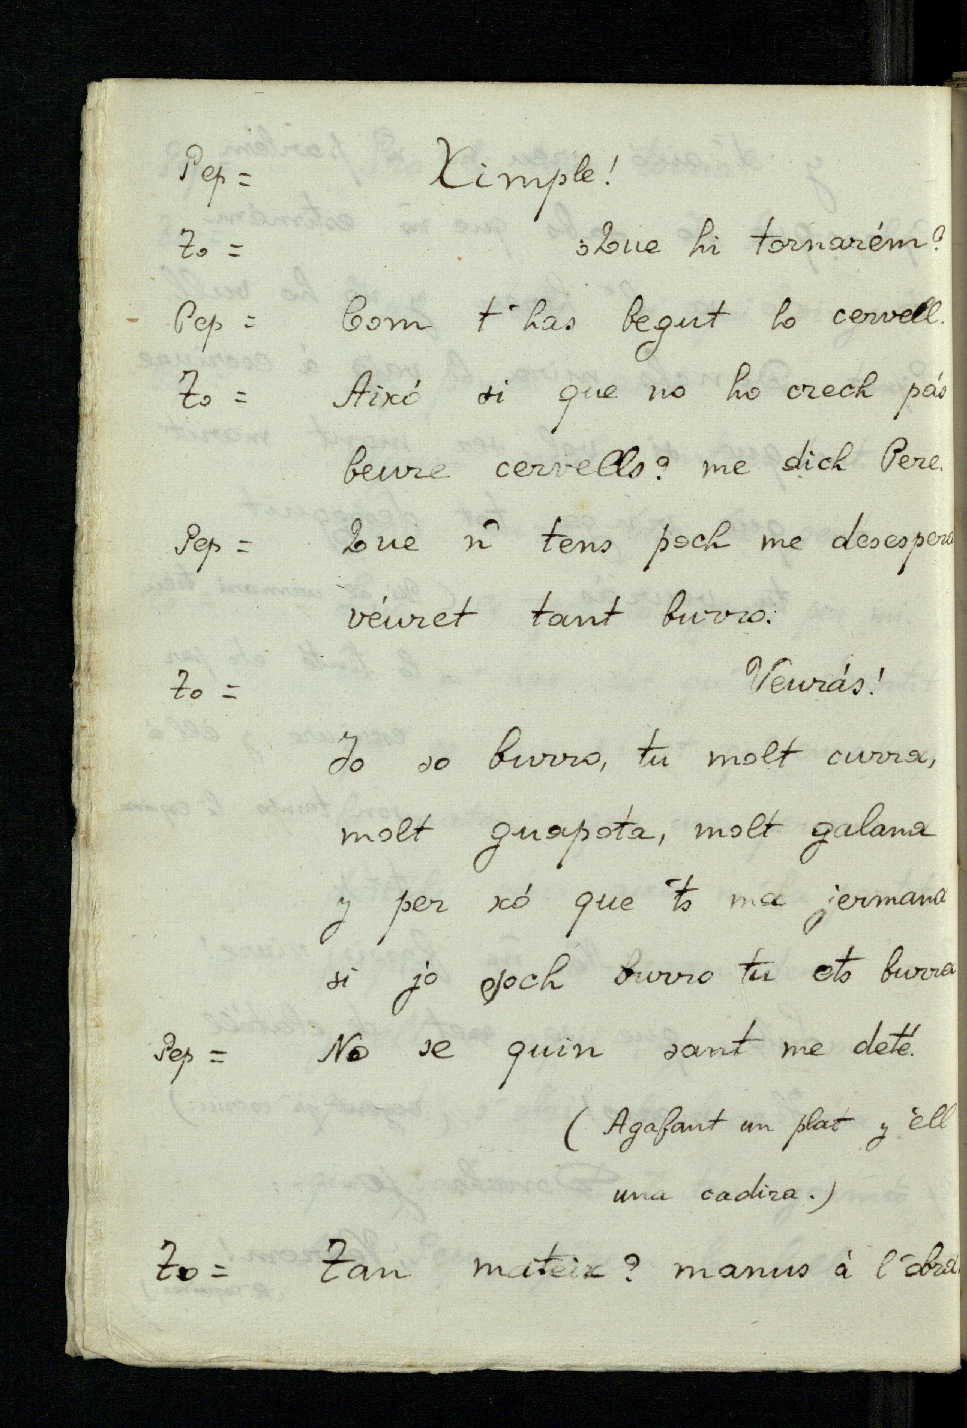 Pep = Ximple!
To = ¿Que hi tornarém?
Pep = Com t'has begut lo cervell.
To = Aixó si que no ho crech pás
beure cervells? me dich Pere.
Pep = Que n' tens poch me desespera
véuret tant burro.
To = Veurás!
Jo so burro, tu molt curra,
molt guapota, molt galana
y per xó que 'ts ma jermana
si jo soch burro tu ets burra
Pep = No se quin sant me deté.
(Agafant un plat y ell
una cadira.)
To = Tan mateix? manus á l'obra.